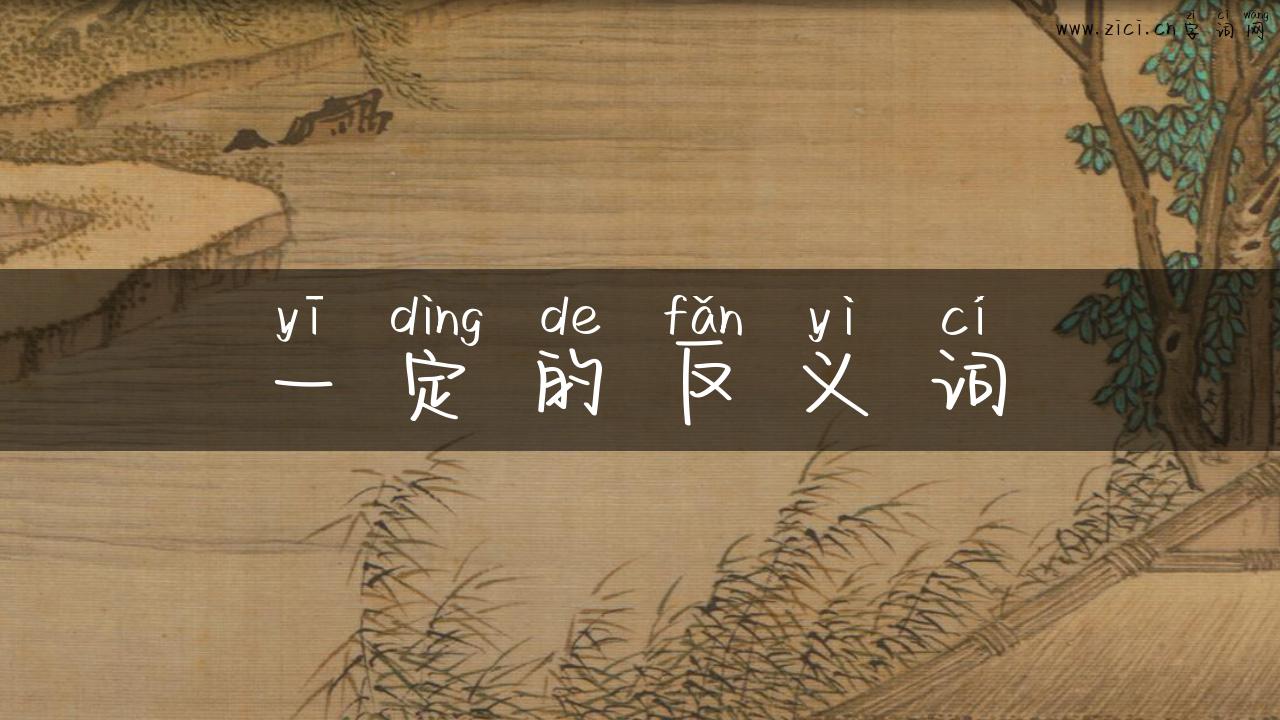 zì cí wǎng
www.zici.cn字词网
yī dìng de fǎn yì cí
一定的反义词